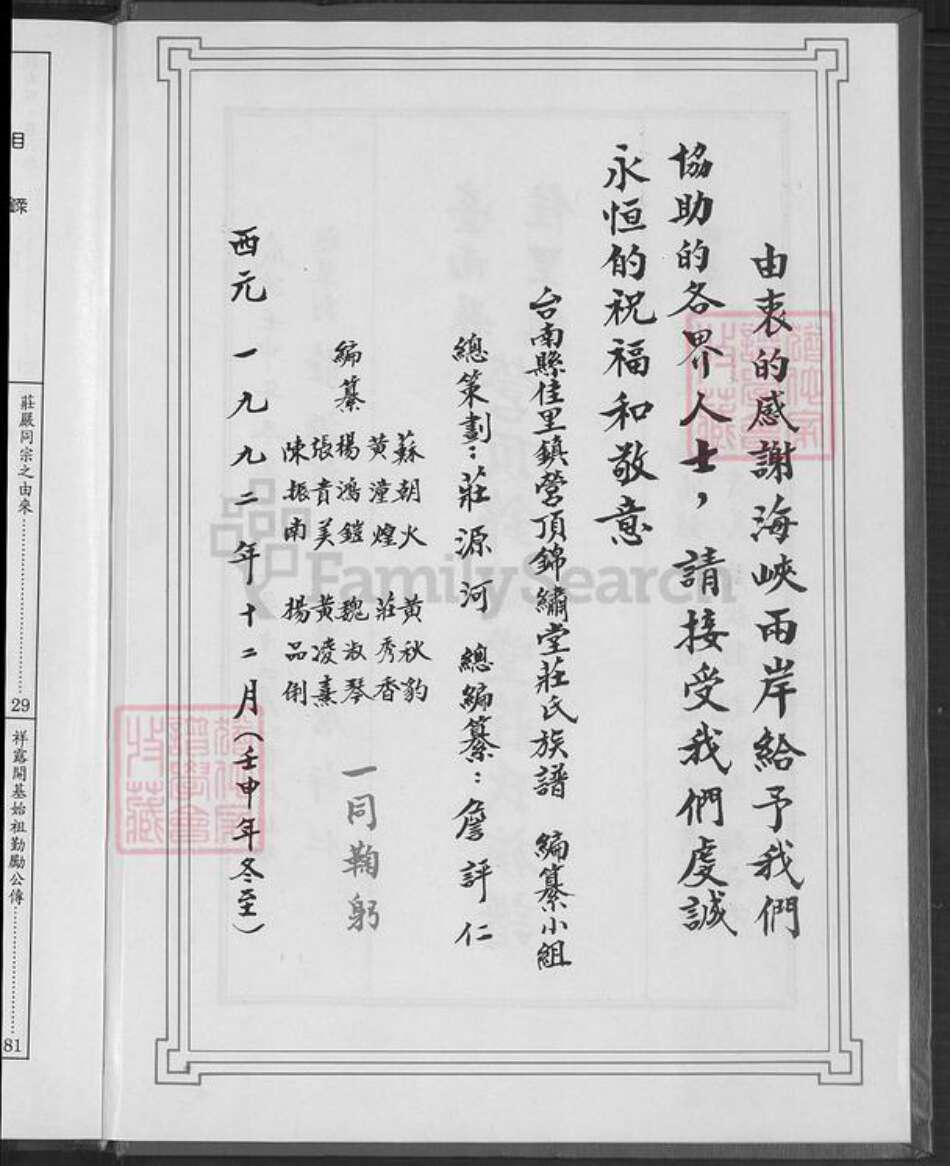 由衷的感謝海峽兩岸給予我們
協助的各界人士，請接受我們虔誠
永恒的祝福和敬意
台南縣佳里鎮營頂錦繡堂莊氏族譜 編纂小組
總策劃：莊源河 總編纂：詹評仁
編纂
蘇朝火 黃秋豹
黃潼煌 莊秀香
楊鴻鎧 魏淑琴
張貴美 黃凌熹
陳振南 楊品俐
一同鞠躬
西元一九九二年十二月（壬申年冬至）
目錄
莊嚴同宗之由來 29
祥露開基始祖勤勵公傳 81
FamilySearch